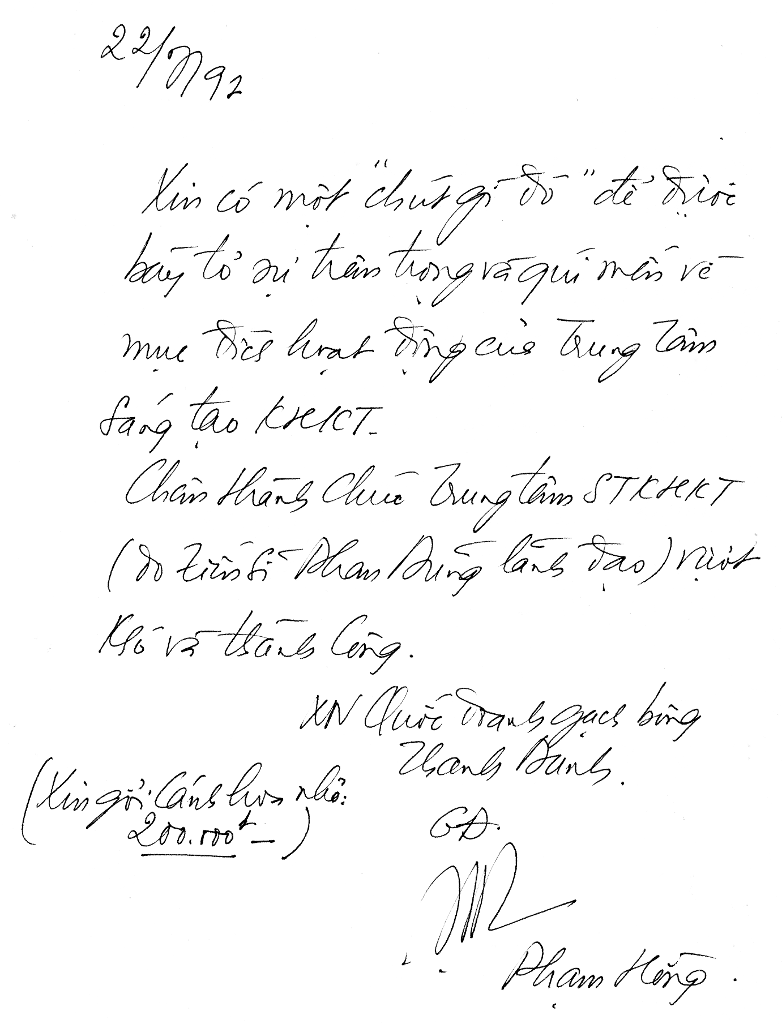 22/7/92
Xin có một "chút gì đó" để được
bày tỏ sự trân trọng và quí mến về
mục đích hoạt động của Trung Tâm
Sáng tạo KHKT.
Chân thành chúc Trung tâm STKHKT
(do Tiến sĩ Phan Dũng lãnh đạo) vượt
khó và thành công.
XN Quốc doanh gạch bông
Thanh Danh.
(Xin gởi cánh hoa nhỏ:
200.000đ —)
GĐ.
Phạm Hồng.